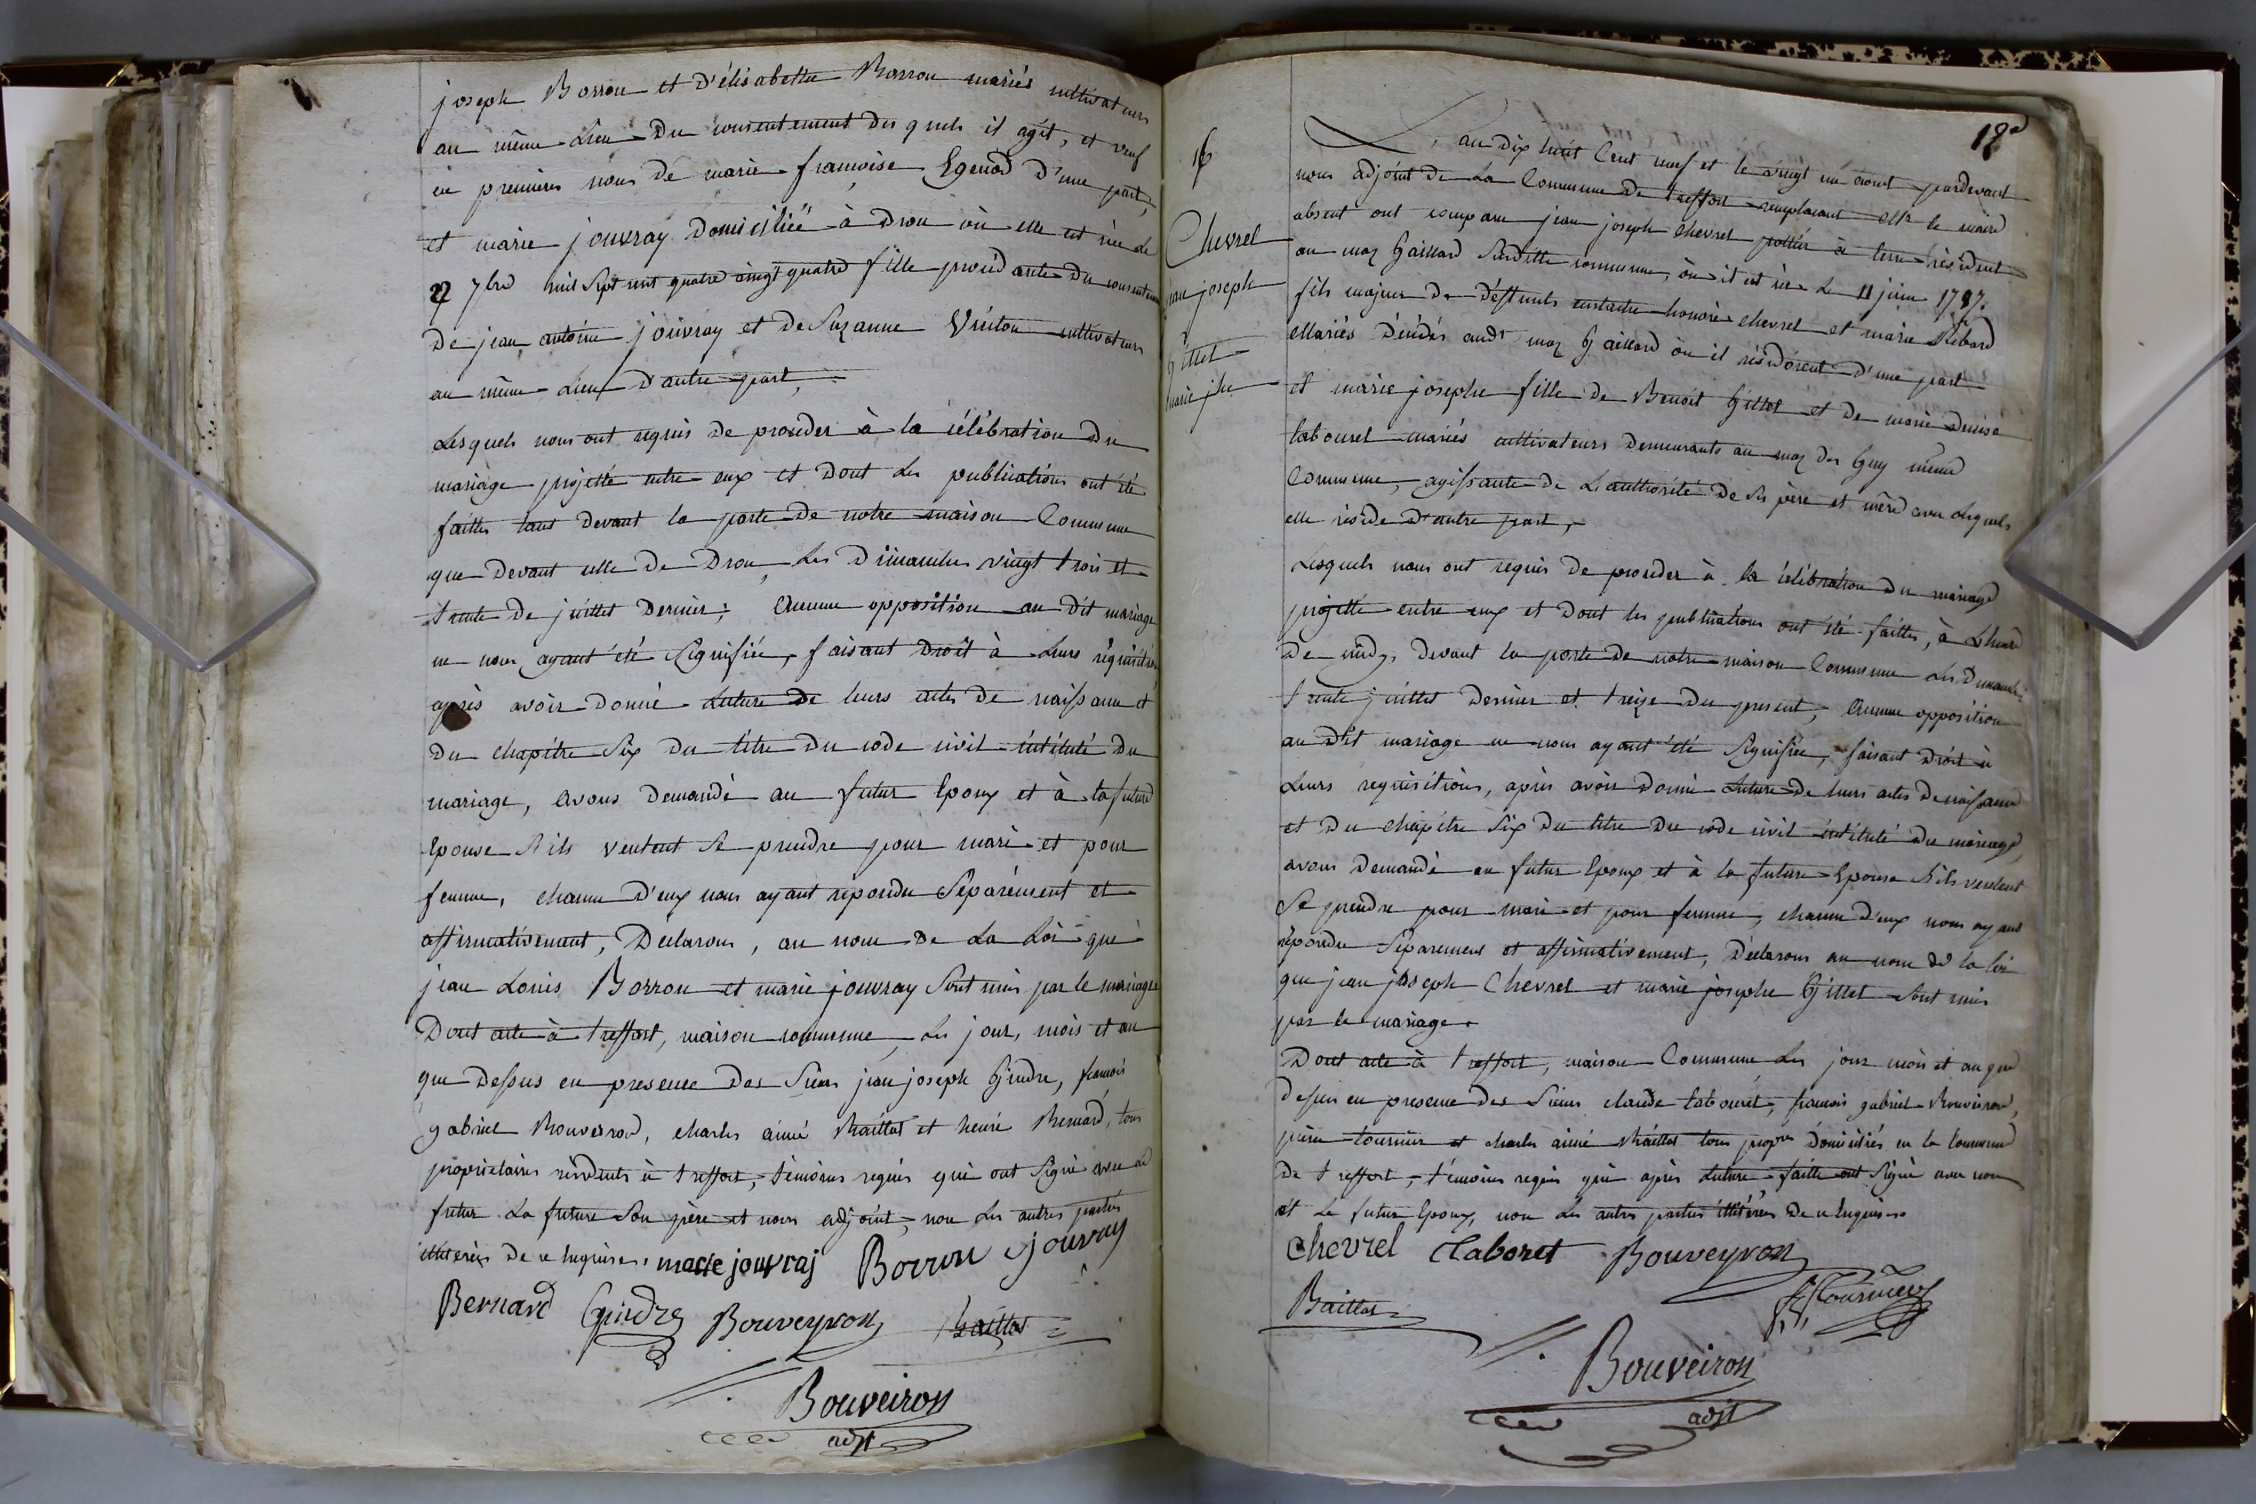 joseph Borron et D'élisabethe Borron mariés cultivateurs
au même Lieu Du consentement des quels il agit, et veuf
en premieres noces de marie françoise Egenod d'une part,
et marie jouvray Domiciliée à Drou où elle est née le
27 7bre mil Sept cent quatre vingt quatre fille procédante du consentement
De jean antoine jouvray et de Suzanne cultivateurs
au même Lieu d'autre part,
Lesquels nous ont requis de proceder à la célébration Du
mariage projetté entre eux et Dont les publications ont été
faittes tant Devant la porte de notre maison Commune
que Devant celle De Drou, les Dimanches vingt trois et
trente De juillet Dernier; Aucune opposition au dit mariage
ne nous ayant été Signifiée, faisant Droit à Leurs réquisitions
après avoir Donné Lecture de leurs actes de naissance et
Du chapitre Six Du titre Du code civil intitulé Du
mariage, Avons Demandé au futur Epoux et à la future
Epouse S'ils veulent Se prendre pour mari et pour
femme, chacun D'eux nous ayant repondu Séparément et
affirmativement, Declarons, au nom de La Loi que
jean Louis Borron et marie jouvray Sont unis par le mariage
Dont acte à treffort, maison commune, Les jour, mois et an
que Dessus en presence Des Sieurs jean joseph Gindre, françois
gabriel Bouveiron, charles aimé Baillat et henri Bernard, tous
propriétaires résidents à treffort, témoins requis qui ont Signé avec le
futur La future Son père et nous adjoint, non les autres parties
illitérées de ce enquises. marie jouvraj Borron jouvray
Bernard Gindre Bouveyron Baillat
Bouveiron
adjt
18e
16
Chevrel
jean joseph
&
Gillet
marie jphe
L'an Dix huit Cent neuf et le vingt un aout pardevant
nous adjoint de la Commune De treffort remplaçant Mr le maire
absent ont comparu jean joseph Chevrel pottier à terre résident
au maz Gaillard Susditte commune, où il est né le 11 juin 1787.
fils majeur de Deffunts honoré chevrel et marie Rebard
Mariés Décédés audt maz Gaillard où il résidoient d'une part
et marie josephe fille de Benoit Gillet et de marie Denise
labouret mariés cultivateurs Demeurants au maz des Guy même
Commune, agissante de Lauthorité de Ses père et mère avec lesquels
elle réside d'autre part,
Lesquels nous ont requis de proceder à la célébration du mariage
projetté entre eux et Dont les publications ont été faittes, à Lheure
De midy, Devant la porte de notre maison Commune Les Dimanches
trente juillet Dernier et treize Du present, Aucune opposition
au Dit mariage ne nous ayant été Signifiée, faisant Droit à
Leurs requisitions, après avoir Donné Lecture de leurs actes De naissance
et Du chapitre Six Du titre Du code civil intitulé du mariage,
avons Demandé au futur Epoux et à la future Epouse S'ils veulent
Se prendre pour mari et pour femme, chacun d'eux nous ayant
répondu Séparement et affirmativement, Déclarons au nom de la loi
que jean joseph Chevrel et marie josephe Gillet sont unis
par le mariage.
Dont acte à treffort, maison Commune Les jour mois et an que
dessus en presence Des Sieurs claude labouret, françois gabriel Bouveiron,
tournier et charles aimé Baillat tous propres Domiciliés en la Commune
de treffort, témoins requis qui après Lecture faitte ont Signé avec nous
et Le futur Epoux, non les autres parties illitérées De ce enquises
chevrel Claboret Bouveyron
Baillat Tournier
Bouveiron
adjt